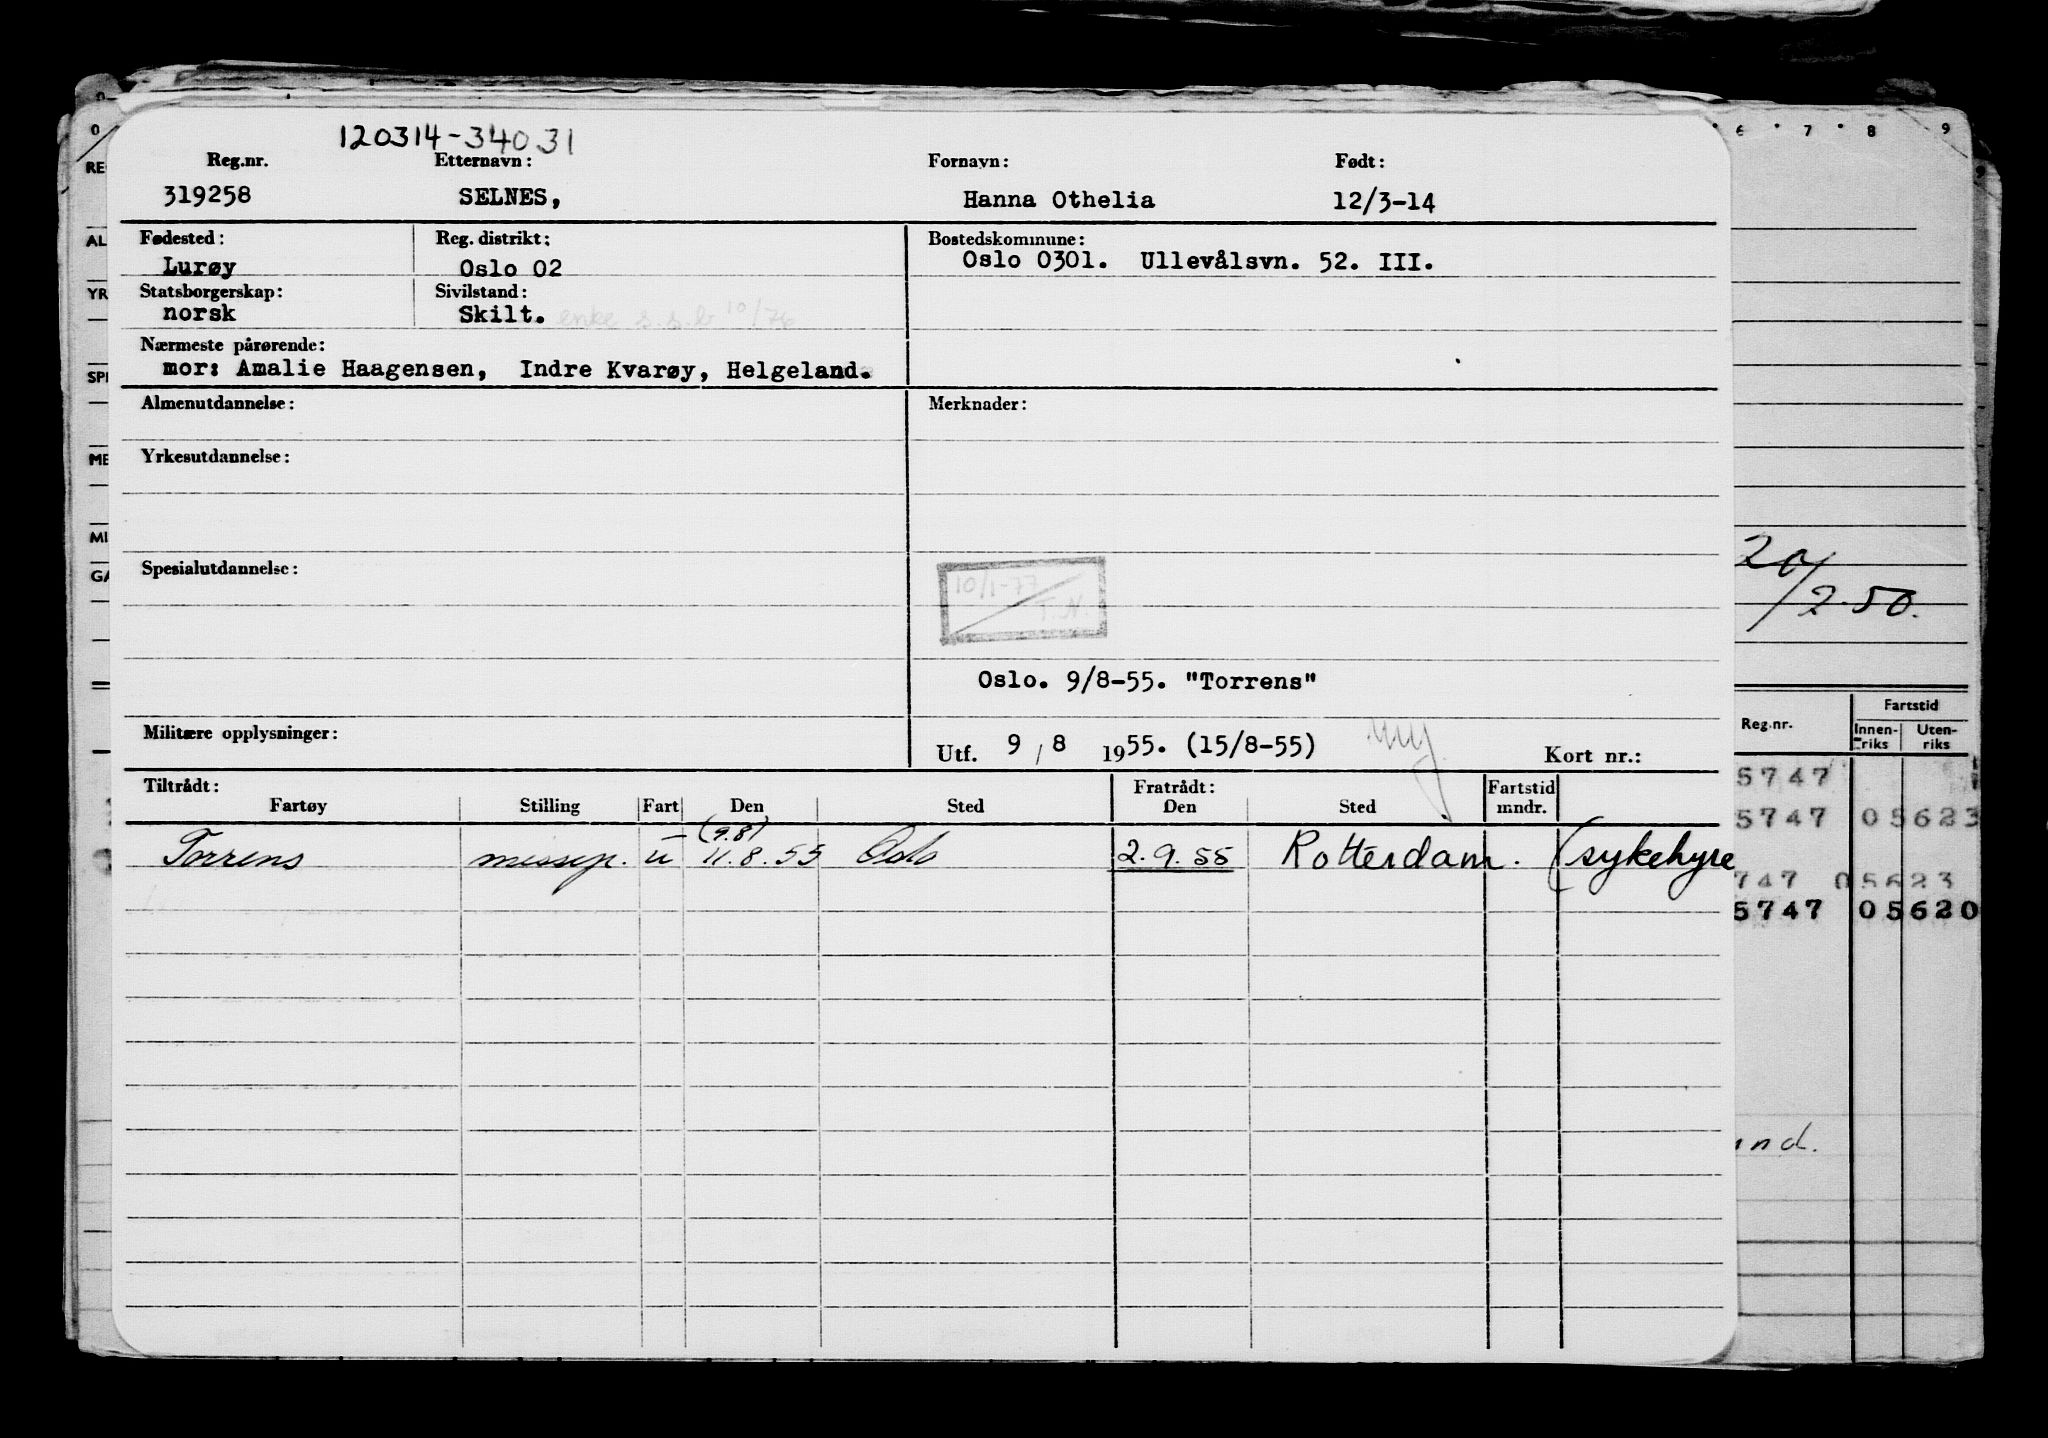 120314-34031
Reg.nr. Etternavn: Fornavn: Født:
319258 SELNES, Hanna Othelia 12/3-14
Fødested: Reg. distrikt: Bostedskommune:
Lurøy Oslo 02 Oslo 0301. Ullevålsvn. 52. III.
Statsborgerskap: Sivilstand:
norsk Skilt. enke s.s.b 10/76
Nærmeste pårørende:
mor: Amalie Haagensen, Indre Kvarøy, Helgeland.
Almenutdannelse: Merknader:
Yrkesutdannelse:
Spesialutdannelse:
10/1-77
T.N.
Oslo. 9/8-55. "Torrens"
Militære opplysninger:
Utf. 9 / 8 1955. (15/8-55) Kort nr.:
Tiltrådt: Fratrådt: Fartstid
Fartøy Stilling Fart Den Sted Den Sted mndr.
(9.8)
Torrens messep. u 11.8.55 Oslo 2.9.55 Rotterdam. (sykehyre
6 7 8 9
20/2.50.
Reg.nr. Fartstid
Innen-riks Uten-riks
5747
5747 05623
747 05623
5747 05620
nd.